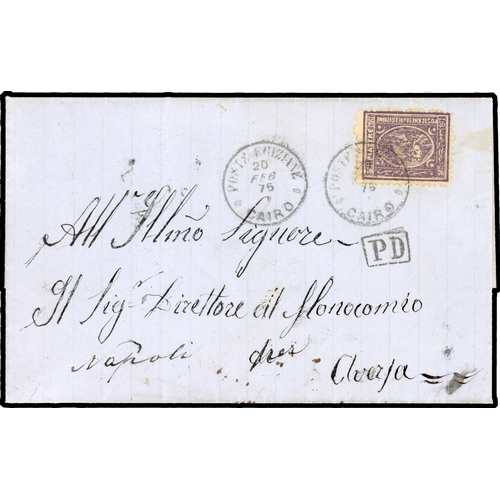 POSTE EGIZIANE
20
FEB
75
CAIRO
POSTE
75
CAIRO
PD
All' Illmo Signore
Il Sigr. Direttore al Monocomio
Napoli per
Aversa